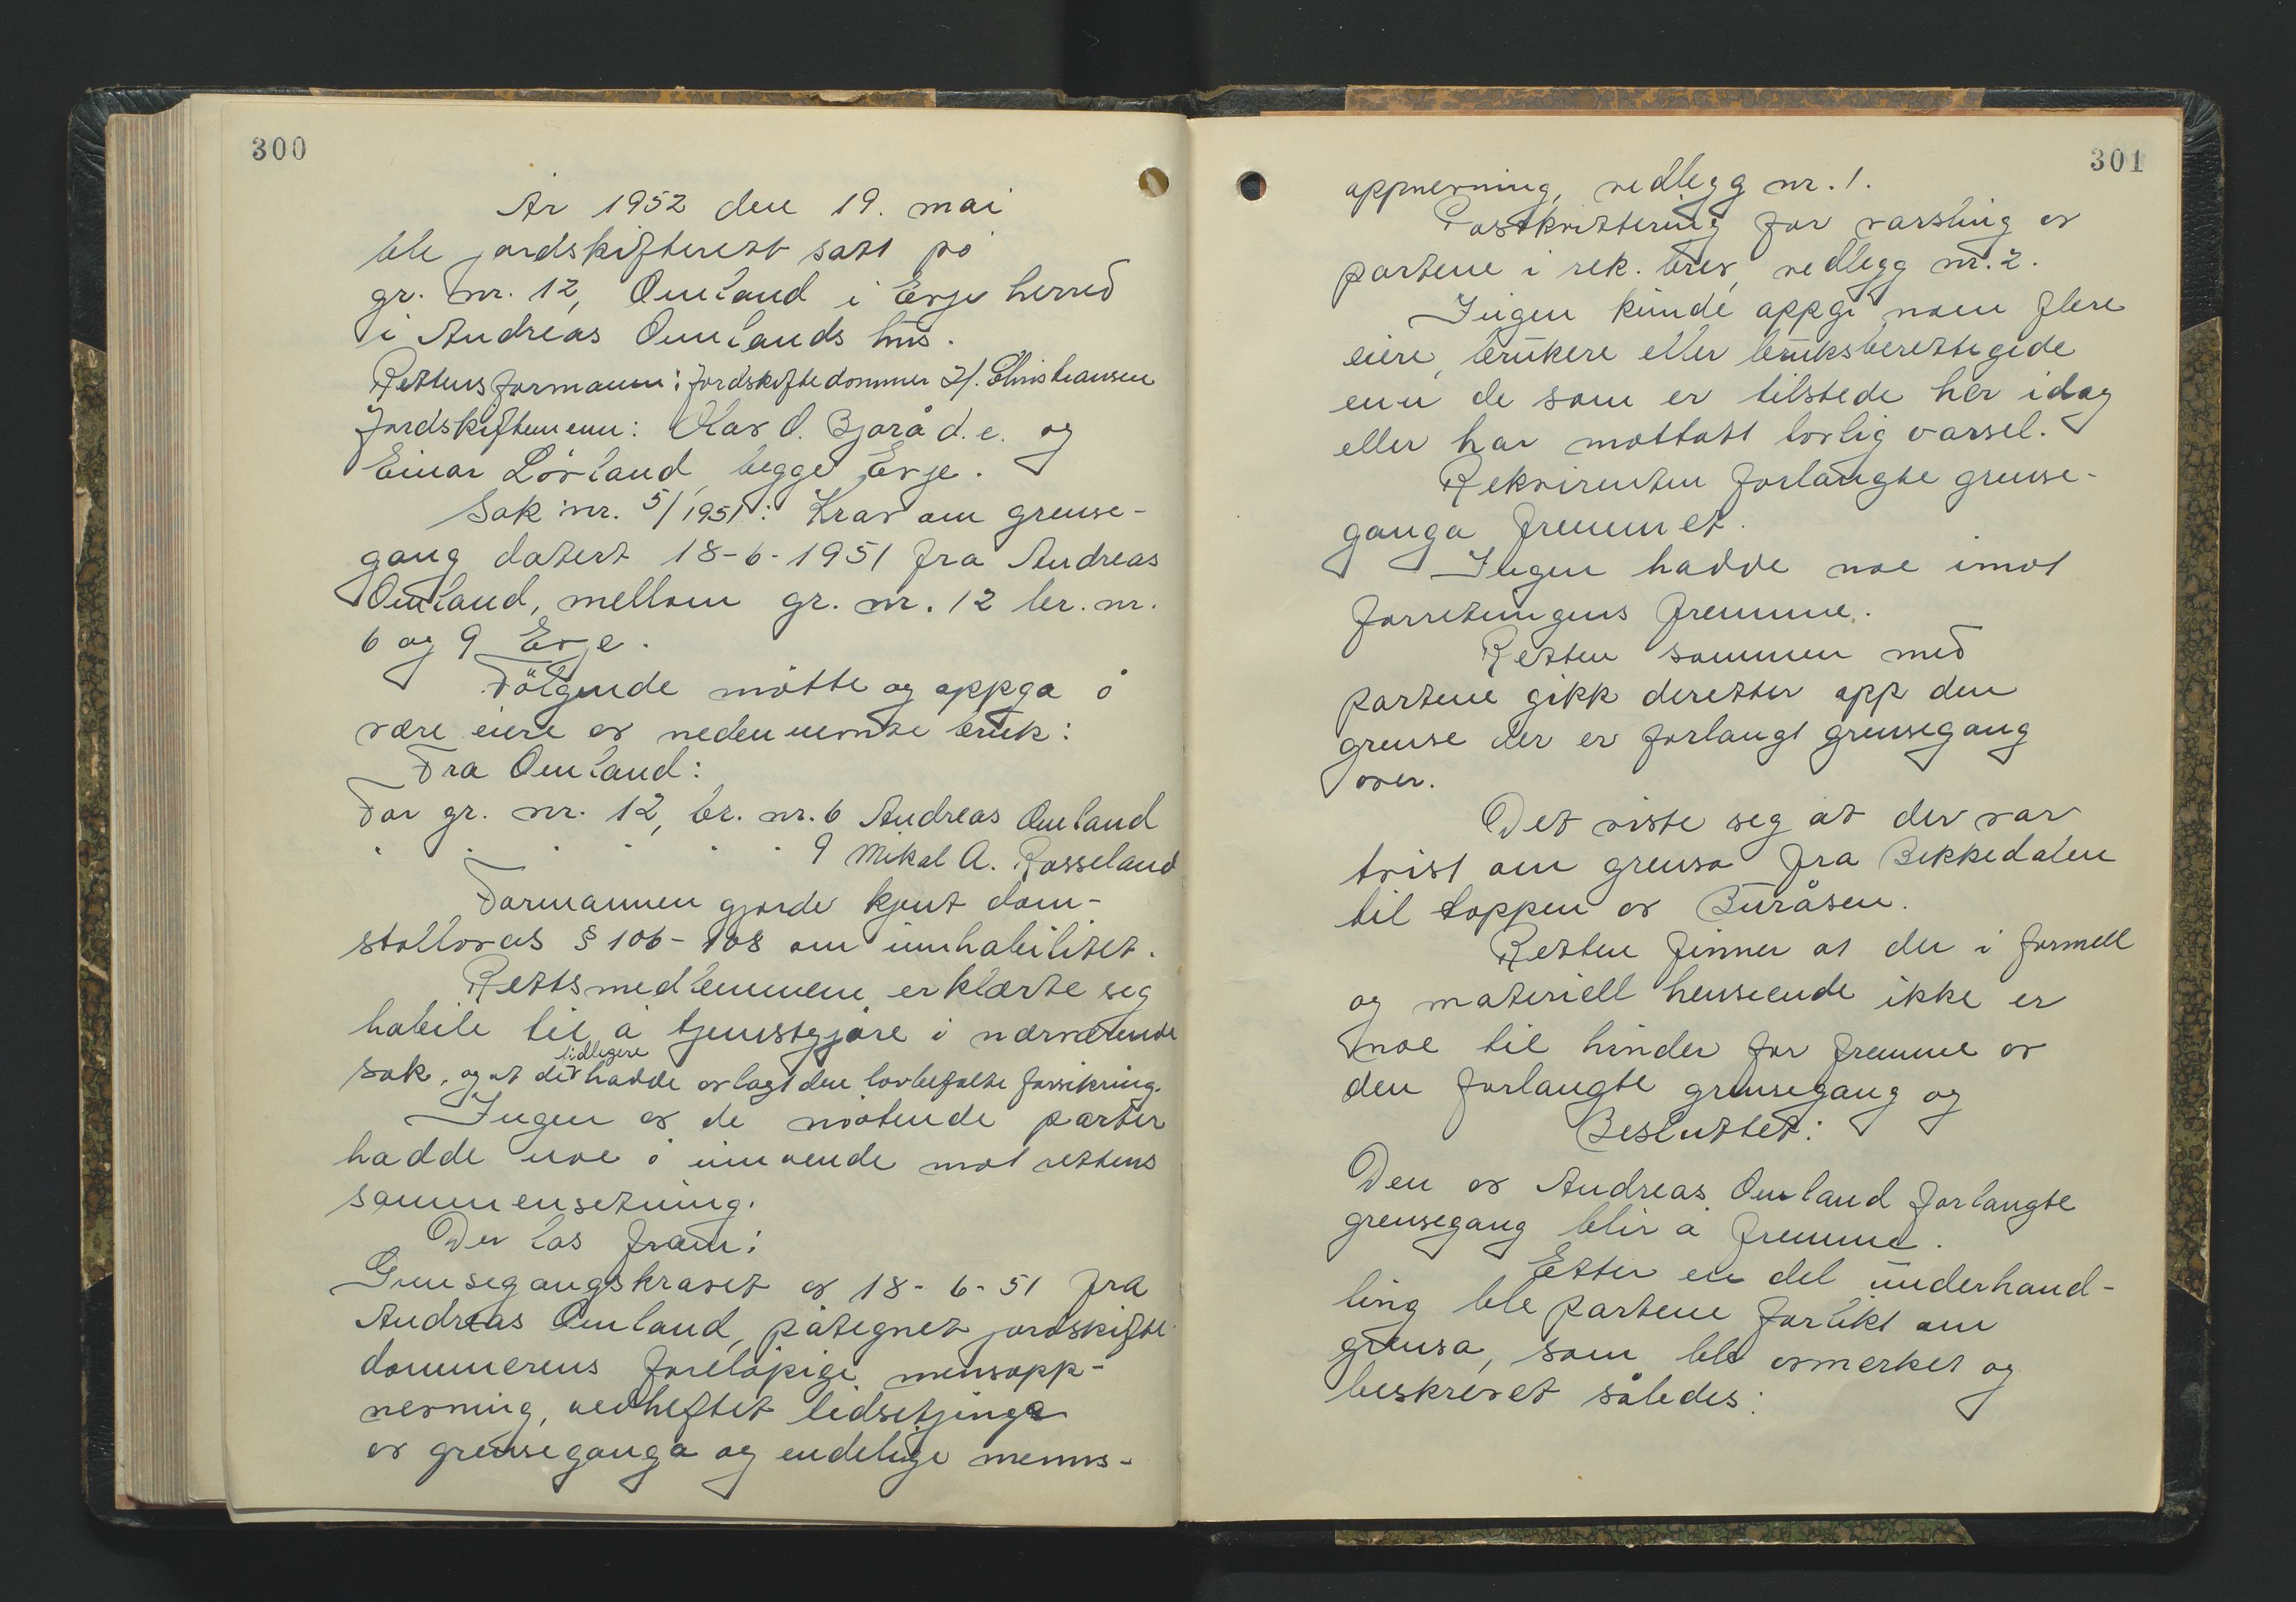 300
År 1952 den 19. mai
ble jordskifterett satt på
gr. nr. 12, Omland i Evje herred
i Andreas Omlands hus.
Rettens formann: Jordskiftedommer H. Christiansen
Jordskiftemenn: Olav O. Bjorå d.e. og
Einar Lövland, begge Evje.
Sak nr. 5/1951: Krav om grense-
gang datert 18-6-1951 fra Andreas
Omland, mellom gr. nr. 12 br. nr.
6 og 9 Evje.
Fölgende møtte og oppga å
være eiere av nedennevnte bruk:
Fra Omland:
For gr. nr. 12, br. nr. 6 Andreas Omland
" " " " " " 9 Mikal A. Rosseland
Formannen gjorde kjent dom-
stollovas § 106-108 om innhabilitet.
Rettsmedlemmene erklærte seg
habile til å tjenstgjøre i nærværende
sak, og at de tidligere hadde avlagt den lovbefalte forsikring.
Ingen av de møtende parter
hadde noe å innvende mot rettens
sammensetning.
Der las fram:
Grensegangskravet av 18-6-51 fra
Andreas Omland, påtegnet jordskifte-
dommerens foreløpige mensopp-
nevning, vedheftet lidsetjinga
av grenseganga og endelige menns-
301
oppnevning, vedlegg nr. 1.
Postkvittering for varsling av
partene i rek. brev, vedlegg nr. 2.
Ingen kunde oppgi noen flere
eiere, brukere eller bruksberettigede
enn de som er tilstede her idag
eller har mottatt lovlig varsel.
Rekvirenten forlangte grense-
ganga fremmet.
Ingen hadde noe imot
forretningens fremme.
Retten sammen med
partene gikk deretter opp den
grense der er forlangt grensegang
over.
Det viste seg at der var
tvist om grensa fra Bekkedalen
til toppen av Buråsen.
Retten finner at der i formell
og materiell henseende ikke er
noe til hinder for fremme av
den forlangte grensegang og
Besluttet:
Den av Andreas Omland forlangte
grensegang blir å fremme.
Etter en del underhand-
ling ble partene forlikt om
grensa, som ble avmerket og
beskrevet således: